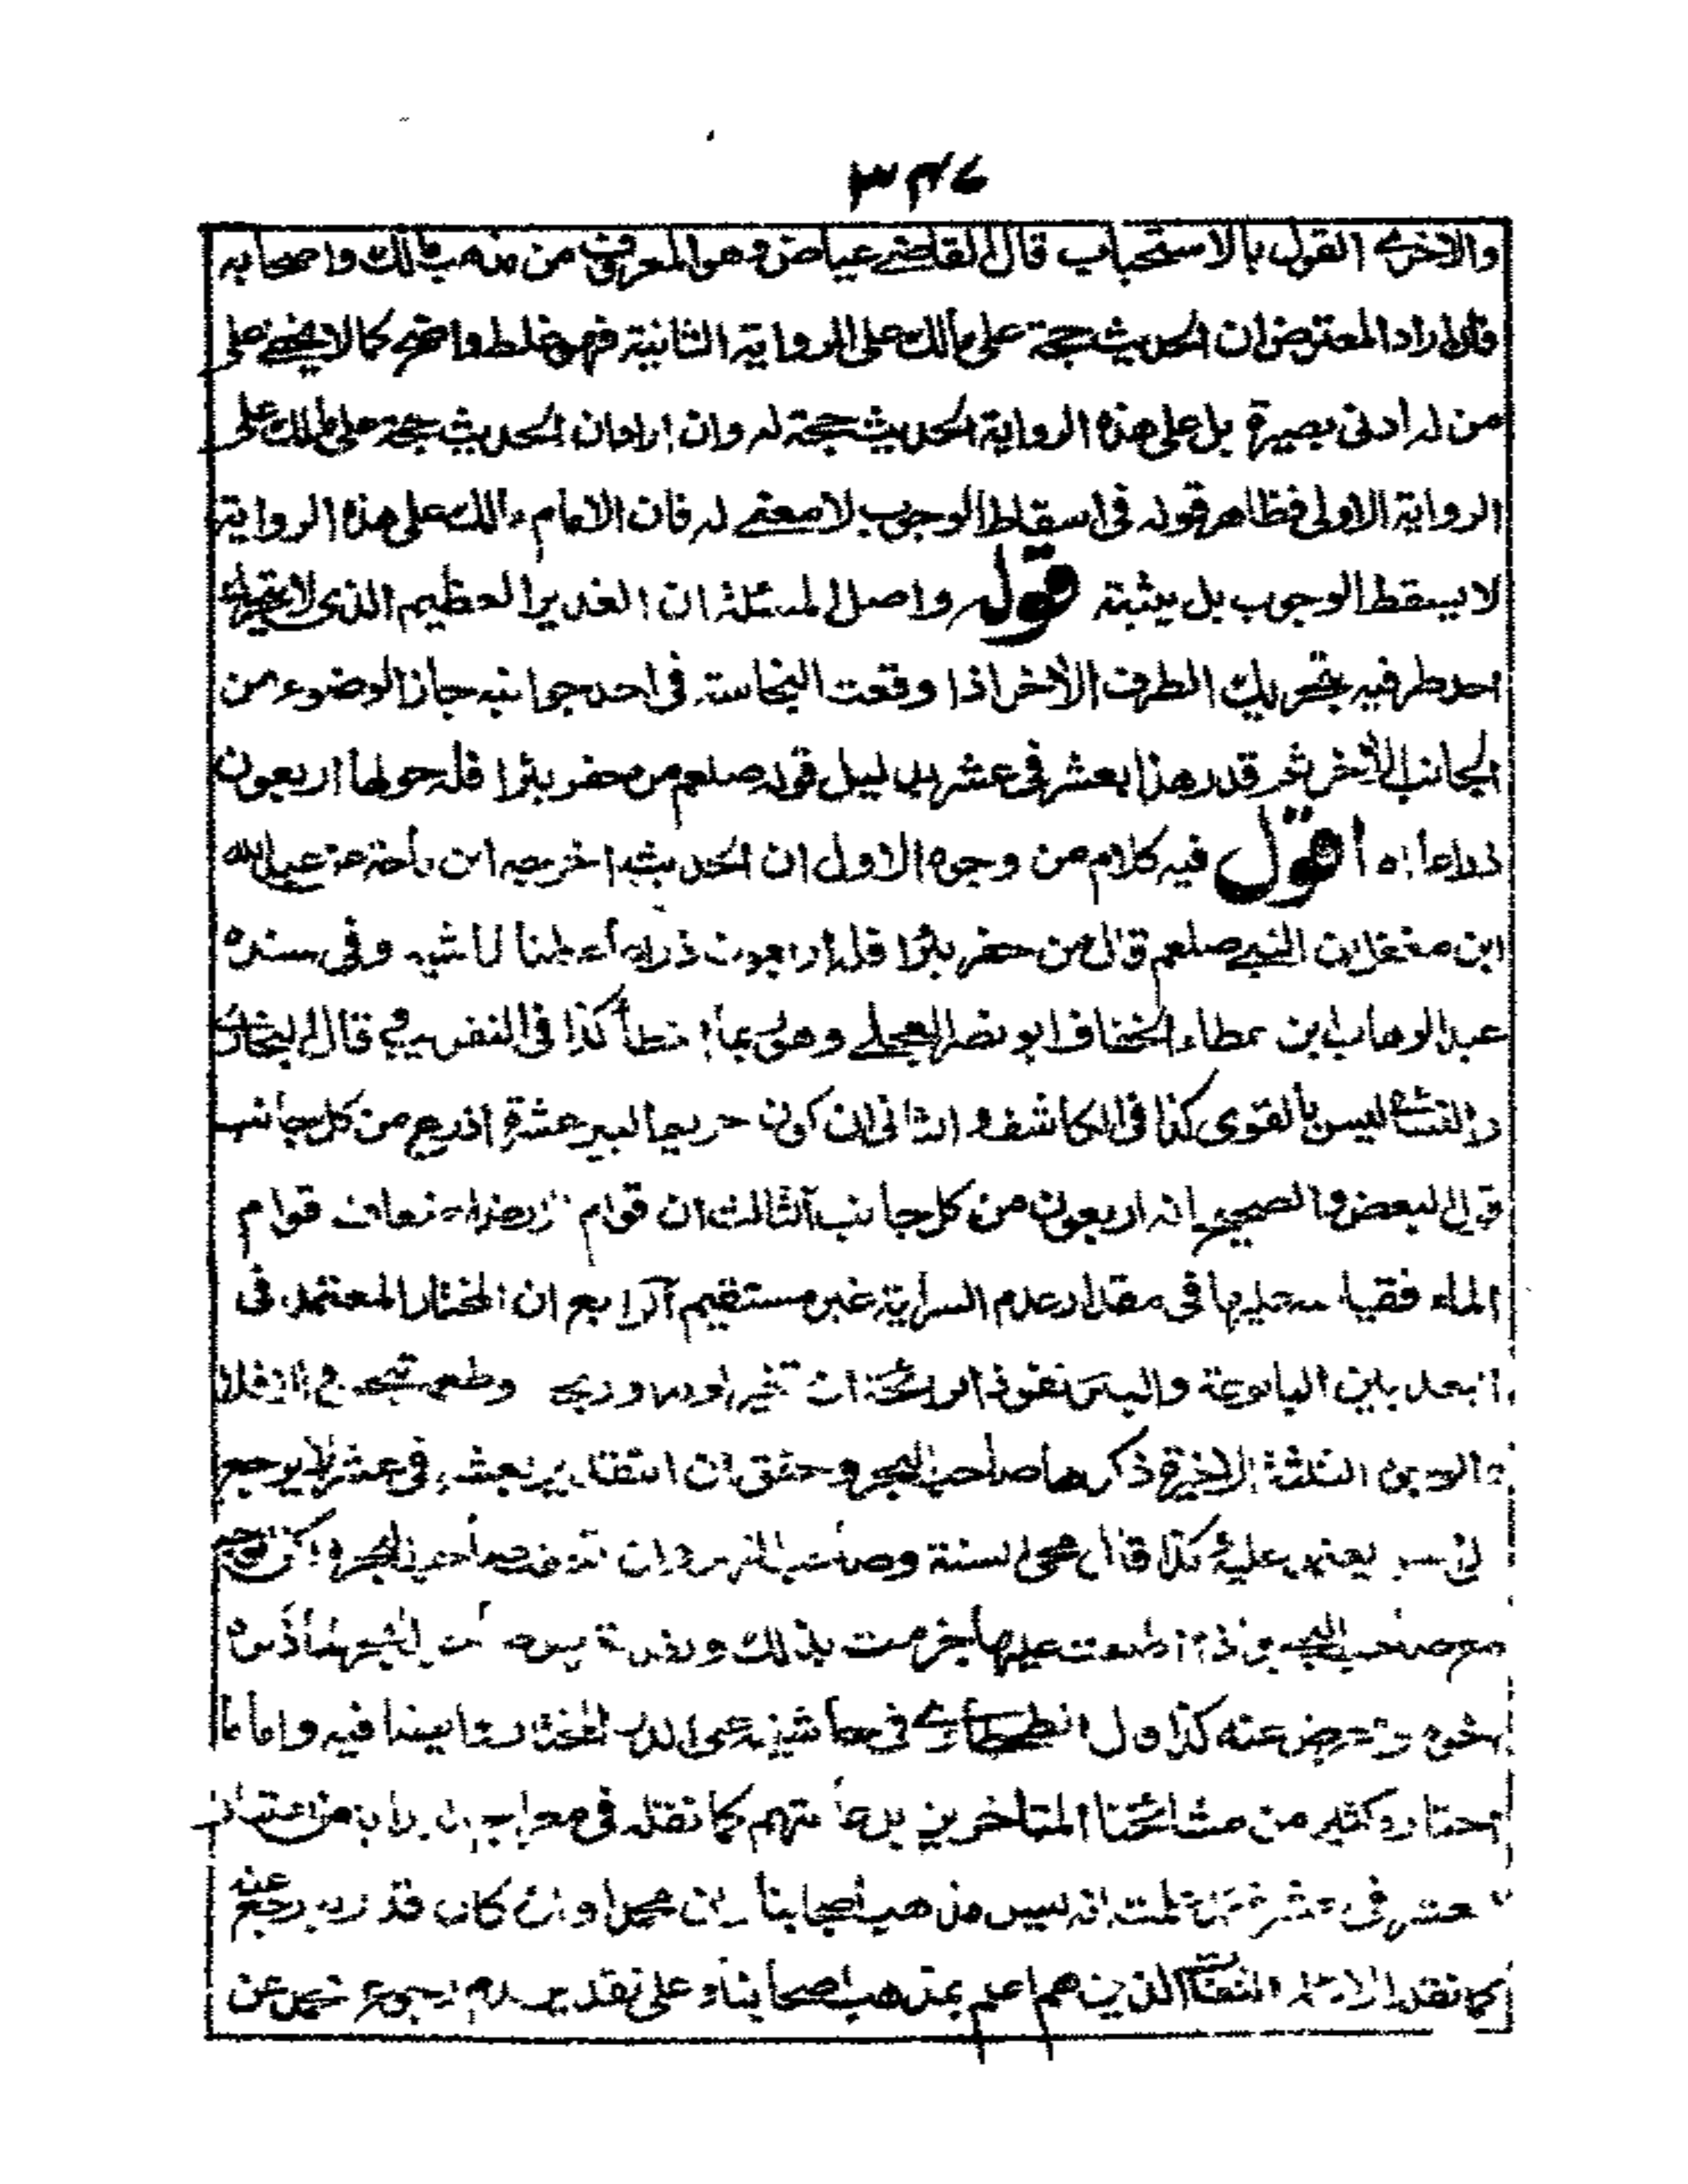 والاخرى القول بالاستحباب قال القاضے عياض وهو المعروف من مذهب مالك واصحابه
فان اراد المعترض ان الحديث حجة على مالك على الرواية الثانية فهو غلط واضح كما لا يخفے على
من له ادنى بصيرة بل على هذه الرواية الحديث حجة له وان اراد ان الحديث حجة على مالك على
الرواية الاولى فظاهر قوله فى اسقاط الوجوب لا معنے له فان الامام مالك على هذه الرواية
لا يسقط الوجوب بل يثبته قوله واصل المسئلة ان الغدير العظيم الذى لا يتحرك
احد طرفيه بتحريك الطرف الاخر اذا وقعت النجاسة فى احد جوانبه جاز الوضوء من
الجانب الاخر ثم قدر هذا بعشر فى عشر بدليل قوله صلعم من حفر بئرا فله حولها اربعون
ذراعا اه اقول فيه كلام من وجوه الاول ان الحديث اخرجه ابن ماجة عن عبد الله
ابن مغفل ان النبے صلعم قال من حفر بئرا فله اربعون ذراعا عطنا لماشيه وفى سنده
عبد الوهاب بن عطاء الخفاف ابو نصر العجلے وهو ربما اخطأ كذا فى التقريب قال البخارى
والنسائى ليس بالقوى كذا فى الكاشف والثانى ان كون حريم البير عشرة اذرع من كل جانب
قول البعض والصحيح انه اربعون من كل جانب الثالث ان قوام الارض اضعاف قوام
الماء فقياسه عليها فى مقدار عدم السراية غير مستقيم الرابع ان المختار المعتمد فى
البعد بين البالوعة والبير نفوذ الرائحة ان تغير لونه او ريحه وطعمه تنجس والا فلا
والوجوه الثلثة الاخيرة ذكرها صاحب البحر وحقق ان التقدير بعشر فى عشر لا يرجع
الى يعتمد عليه كذا قال محى السنة وصاحب النهر وان صاحب البحر
مع صاحب البحر عليها جزمت بذلك
كذا قال الطحطاوى فى حاشيته على الدر المختار ينافيه واما ما
اختاره كثير من مشائخنا المتاخرين بل عامتهم كما نقله فى معراج الدراية من اعتبار
عشر فى عشر فقد علمت انه ليس مذهب اصحابنا وان محمدا وان كان قدر به رجع عنه
كما نقله الائمة الثقات الذين هم اعلم بمذهب اصحابنا وعلى تقدير عدم رجوع محمد عن